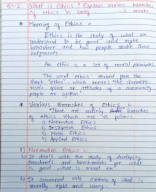 Q-2. What is Ethics? Explain various branches
of ethics in long.
* Meaning of Ethics :-
Ethics is the study of what we
understand to be good and right
behaviour and how people make those
judgements.
An ethic is a set of moral principles.
The word "ethics" derived from the
Greek "ethos" which means the customs,
habits or attitude of a community
people or system.
* Various Branches of Ethics :-
There are mainly branches
of ethics which are as given :
1) Normative Ethics
2) Descriptive Ethics
3) Meta Ethics
4) Applied Ethics
1) Normative Ethics :-
It deals with the study of developing
standards and for what
is good what is moral
morally right and wrong.